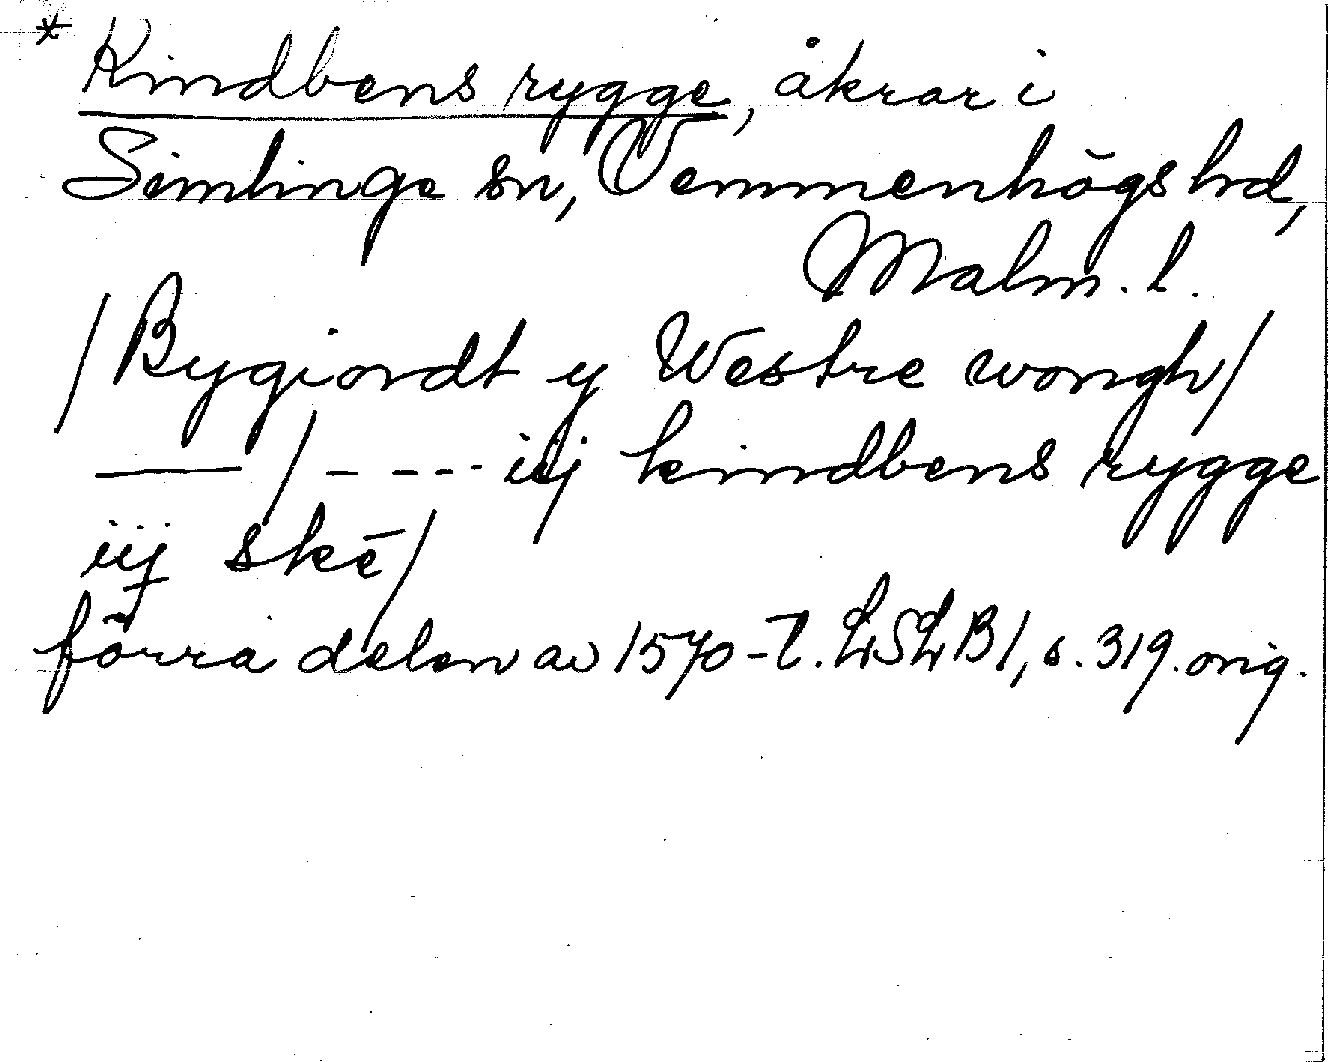 * Kindbens rygge, åkrar i
Simlinge sn, Vemmenhögs hd,
Malm. l.
/Bygiordt y Westre wongh/
—— / – - - - iij kindbens rygge
iij skē/
förra delen av 1570-t. LSLB1, s. 319. orig.